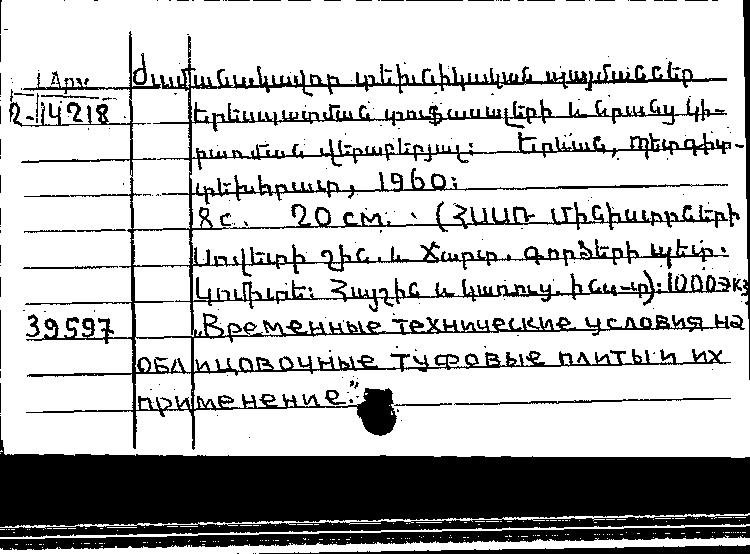 1 Արխ Ժամանակավոր տեխնիկական պայմաններ
2-14218 երեսպատման տուֆասալերի և նրանց կի-
րառման վերաբերյալ: Երևան, Պետգիտ-
տեխհրատ, 1960:
8с. 20 см. . (ՀՍՍՌ Մինիստրների
Սովետի շին. և Ճարտ. գործերի պետ.
կոմիտե: Հայշին և կառուց. ինս-տ): 1000экз
39597 „Временные технические условия на
облицовочные туфовые плиты и их
применение."